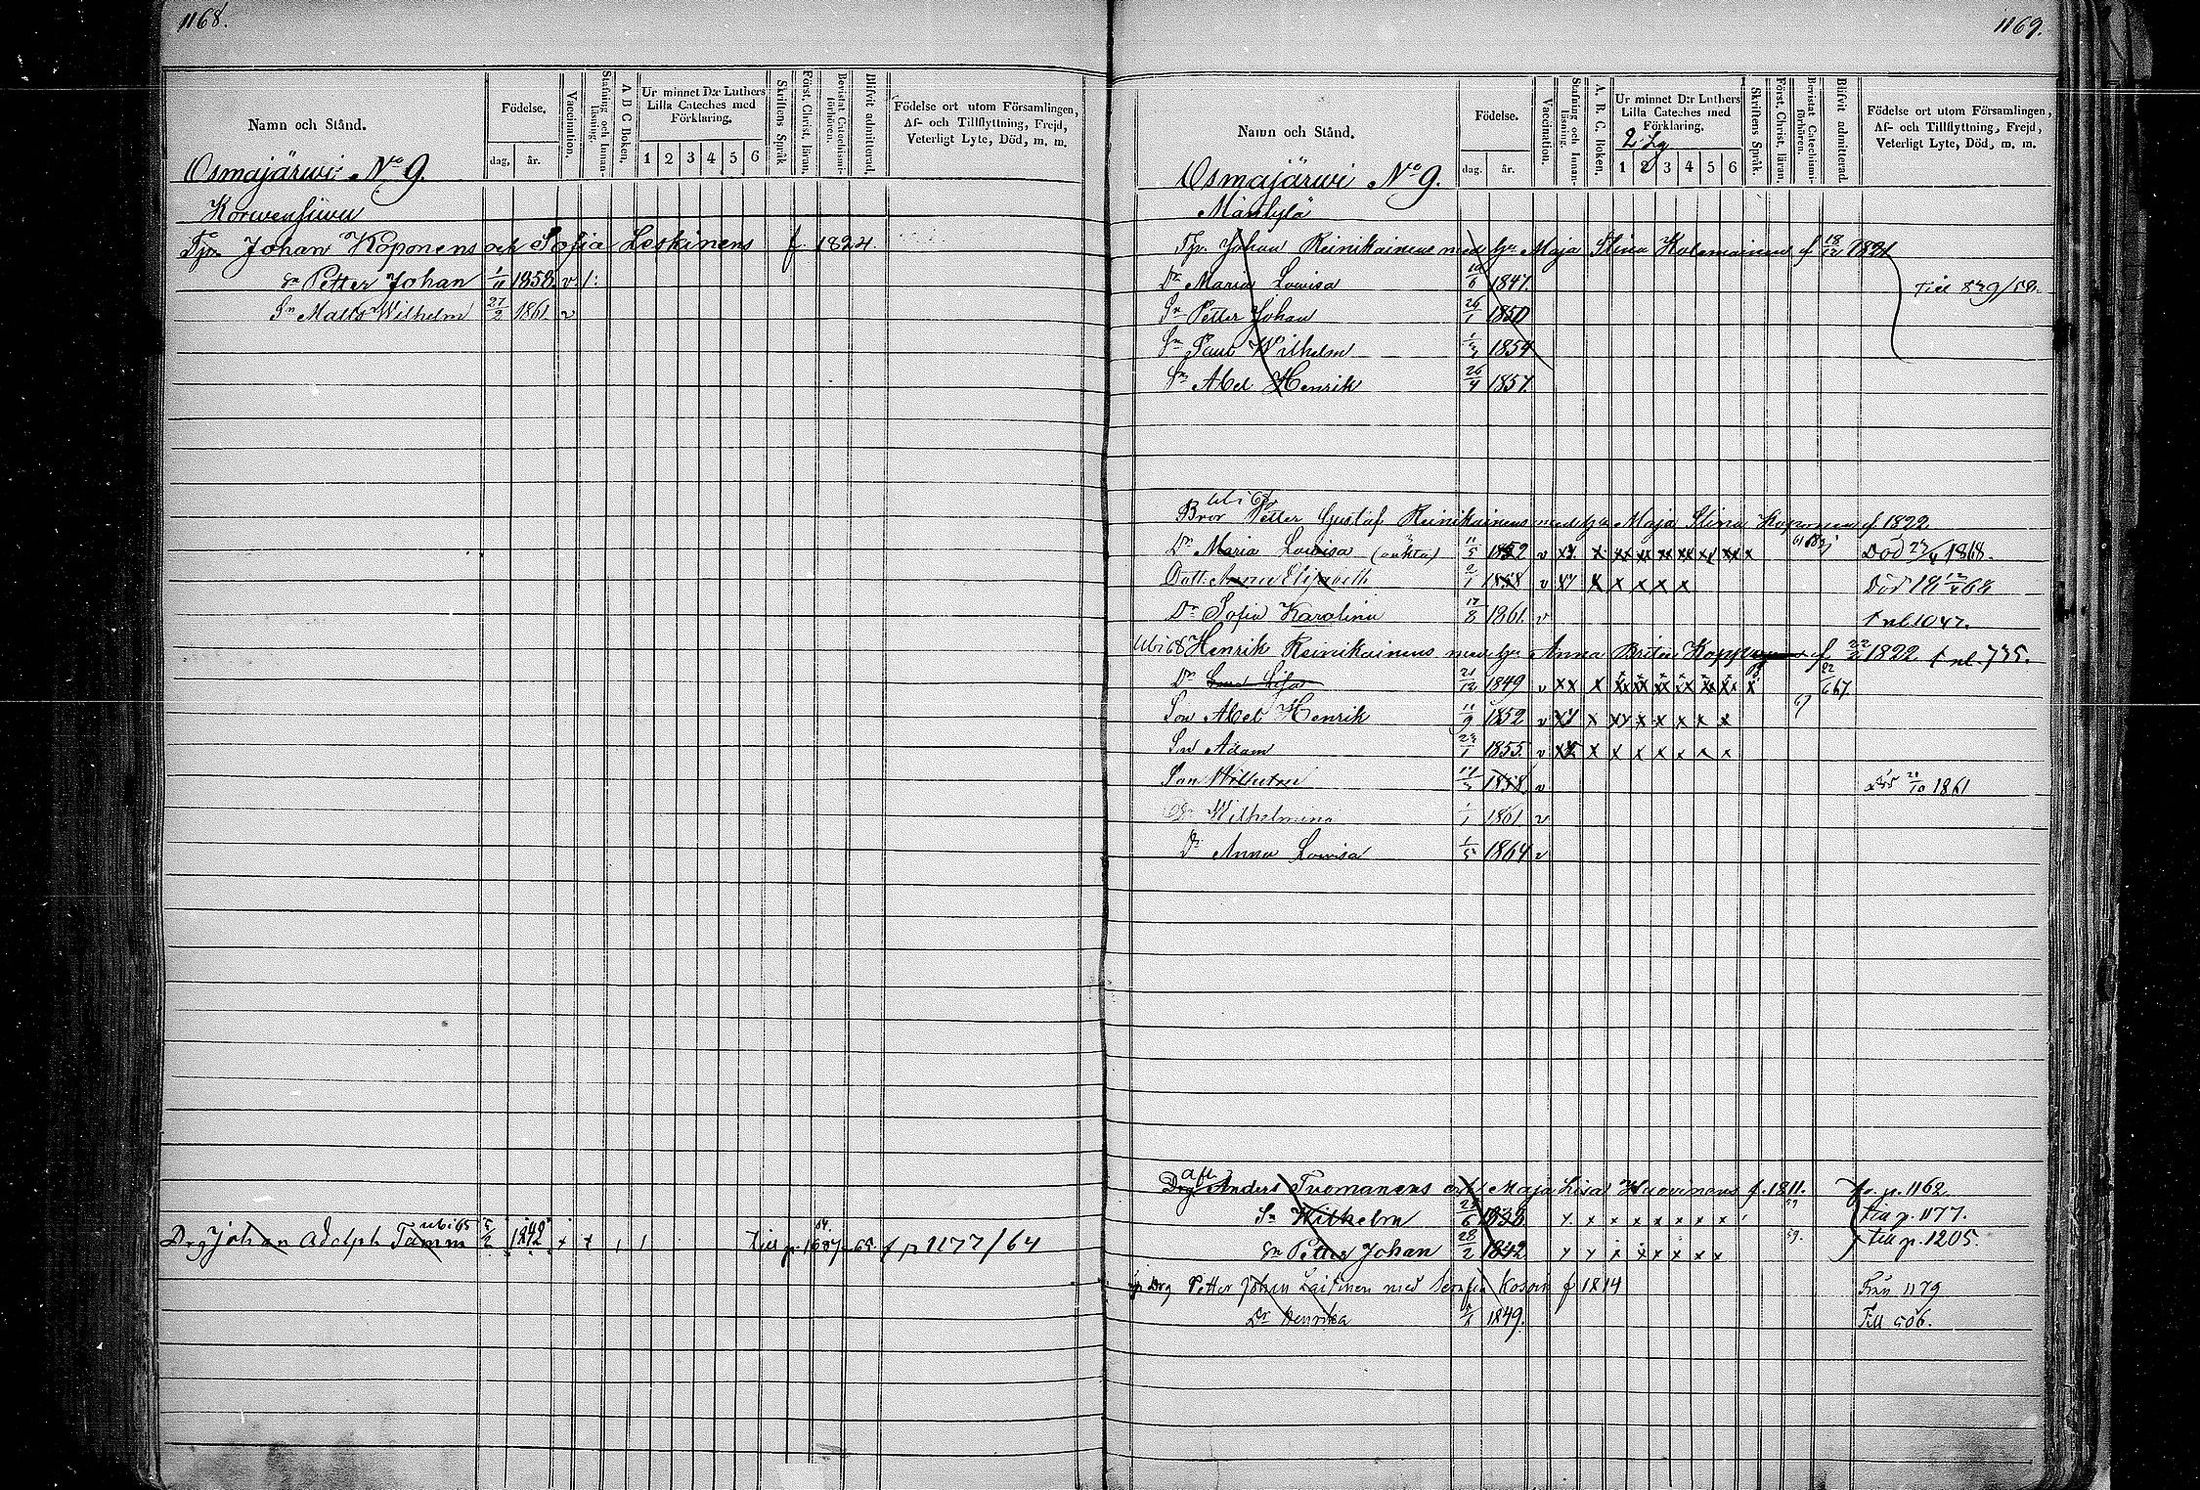 1168.
Namn och Stånd.
Födelse.
dag, år.
Vaccination.
Stafning och Innan-läsning.
A B C Boken.
Ur minnet D:r Luthers Lilla Cateches med Förklaring.
1 2 3 4 5 6
Skriftens Språk.
Först. Christ. läran.
Bevistat Catechismi-förhören.
Blifvit admitterad.
Födelse ort utom Församlingen, Af- och Tillflyttning, Frejd, Veterligt Lyte, Död, m. m.
Osmajärwi No 9.
Johan Koponens och Sofia Leskinens f. 1824.
Sn Petter Johan 1858. v
Sn Matts Wilhelm 27/2 1861 v
Drg Johan Adolph Tamm ubi 65 1842 Till p. 1687 65. f p 1177/64
1169.
Namn och Stånd.
Födelse.
dag. år.
Vaccination.
Stafning och Innan-läsning.
A. B. C. Boken.
Ur minnet D:r Luthers Lilla Cateches med Förklaring.
1 2 3 4 5 6
Skriftens Språk.
Först. Christ. läran.
Bevistat Catechismi-förhören.
Blifvit admitterad.
Födelse ort utom Församlingen, Af- och Tillflyttning, Frejd, Veterligt Lyte, Död, m. m.
Osmajärwi No 9.
Johan Reinikainens med hu Maja Stina f 18/12 1821
Dr Maria Lowisa 1847.
Till 879/59.
Sn Petter Johan 26/1 1850
Sn Paul Wilhelm 1854
Sn Abel Henrik 26/4 1857.
ubi 68
Bror Petter Gustaf Reinikainens med hu Maja Stina Koponen f 1822
Dr Maria Lowisa 11/5 1852 v Död 1868.
Dott. Anna Elisabeth 2/1 1858 v Död 68
Dr Sofia Karolina 17/8 1861. v
ubi 68 Henrik Reinikainens med hu Anna Brita f. 22/2 1822.
Dr Lisa 21/12 1849 v
Son Abel Henrik 11/9 1852 v
Sn Adam 1855. v
Son Wilhelm 1858 v Död 1861
Dr Wilhelmina 1/1 1861 v
Dr Anna Lowisa 1/5 1864 v
Drg Anders Tuomanens och Maja Lisa Huovinens f. 1811. p. 1162
Sn Wilhelm 1838 59 till p. 1177.
Sn Petter Johan 28/2 1842 59. till p. 1205.
Drg Petter Johan Laitinen med f 1814 Från 1179
Dr Henrika 1849. Till 506.